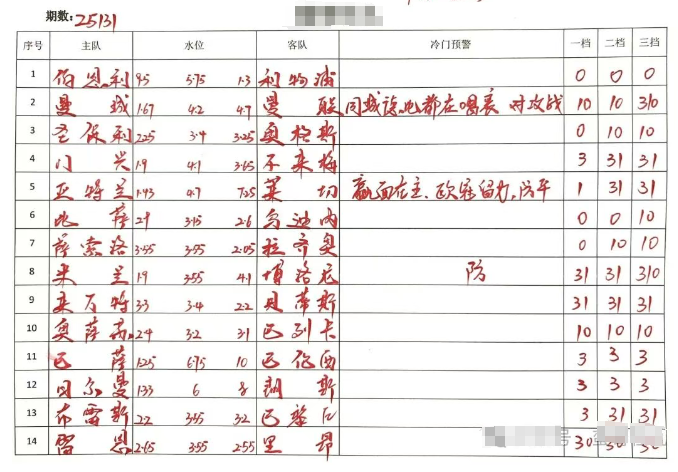 期数: 25131
序号 主队 水位 客队 冷门预警 一档 二档 三档
1 伯恩利 9.5 5.75 1.3 利物浦 0 0 0
2 曼城 1.67 4.2 4.7 曼联 同城 都在唱衰 对攻战 10 10 310
3 圣保利 2.25 3.4 3.25 奥格斯 0 10 10
4 门兴 1.9 4.1 3.65 不来梅 3 31 31
5 亚特兰 1.43 4.7 7.25 莱切 赢面在主、欧冠留力,防平 1 31 31
6 比萨 2.9 3.15 2.6 乌迪内 0 0 10
7 萨索洛 3.55 3.55 2.05 拉齐奥 0 10 10
8 米兰 1.9 3.55 4.1 博洛尼 防 31 31 310
9 莱万特 3.3 3.4 2.2 贝蒂斯 31 31 31
10 奥萨苏 2.4 3.2 3.1 巴列卡 10 10 10
11 巴萨 1.25 6.75 10 巴伦西 3 3 3
12 贝尔曼 1.33 6 8 朗斯 3 3 3
13 布雷斯 2.2 3.55 3.2 巴黎FC 3 31 31
14 雷恩 2.65 3.55 2.55 里昂 30 30 30